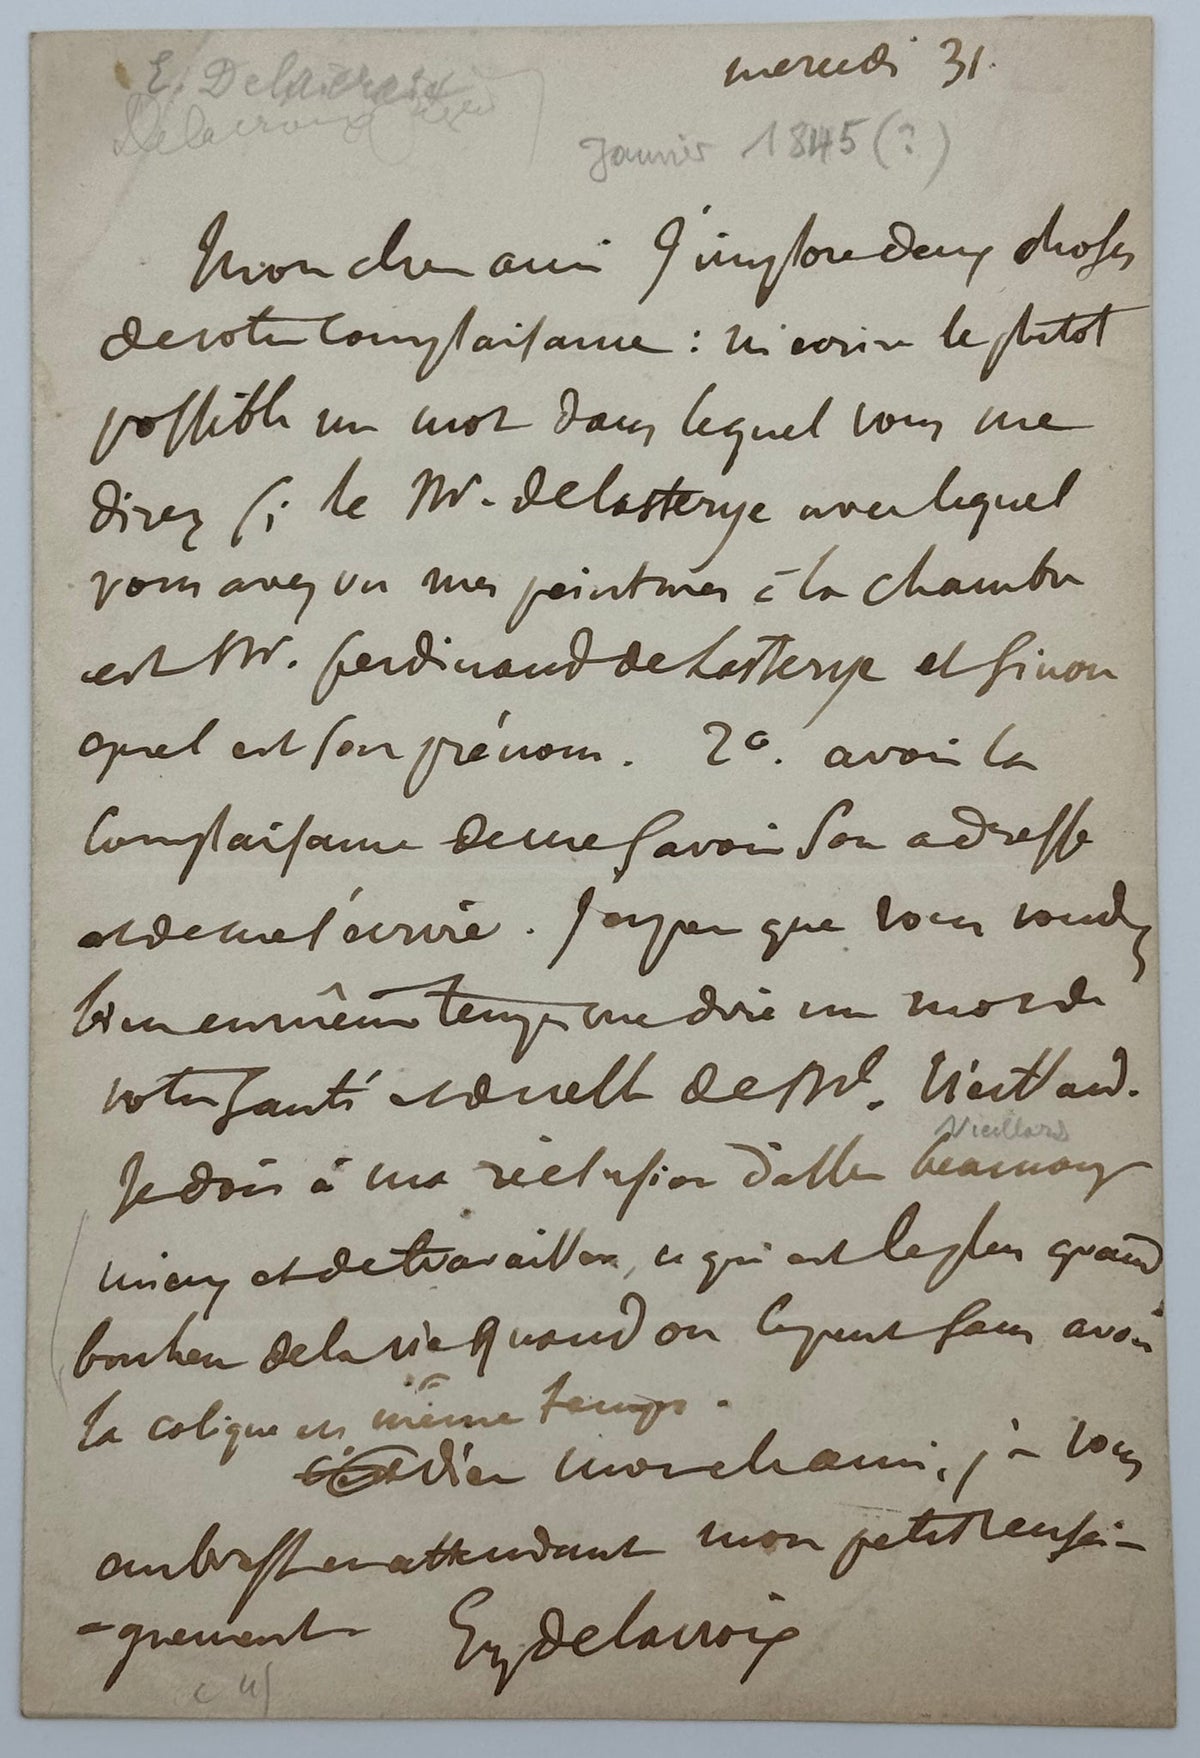 E. Delacroix
Delacroix
mercredi 31.
Janvier 1845 (?)
Mon cher ami J'implore deux choses
de votre complaisance : m'écrire le plutot
possible un mot dans lequel vous me
direz si le Mr. de Lasterye avec lequel
vous avez vu mes peintures à la chambre
est Mr. ferdinand de Lasterye et sinon
quel est son prénom. 2°. avoir la
complaisance de me savoir son adresse
et de me l'écrire. J'espere que vous voudrez
bien en même temps me dire un mot de
votre santé et de celle de Me. Vieillard.
Vieillard
Je dois à ma réclusion d'aller beaucoup
mieux et de travailler, ce qui est le plus grand
bonheur de la vie quand on le peut sans avoir
la colique en même temps.
adieu mon cher ami, je vous
embrasse en attendant mon petit rensei-
-gnement Eug Delacroix